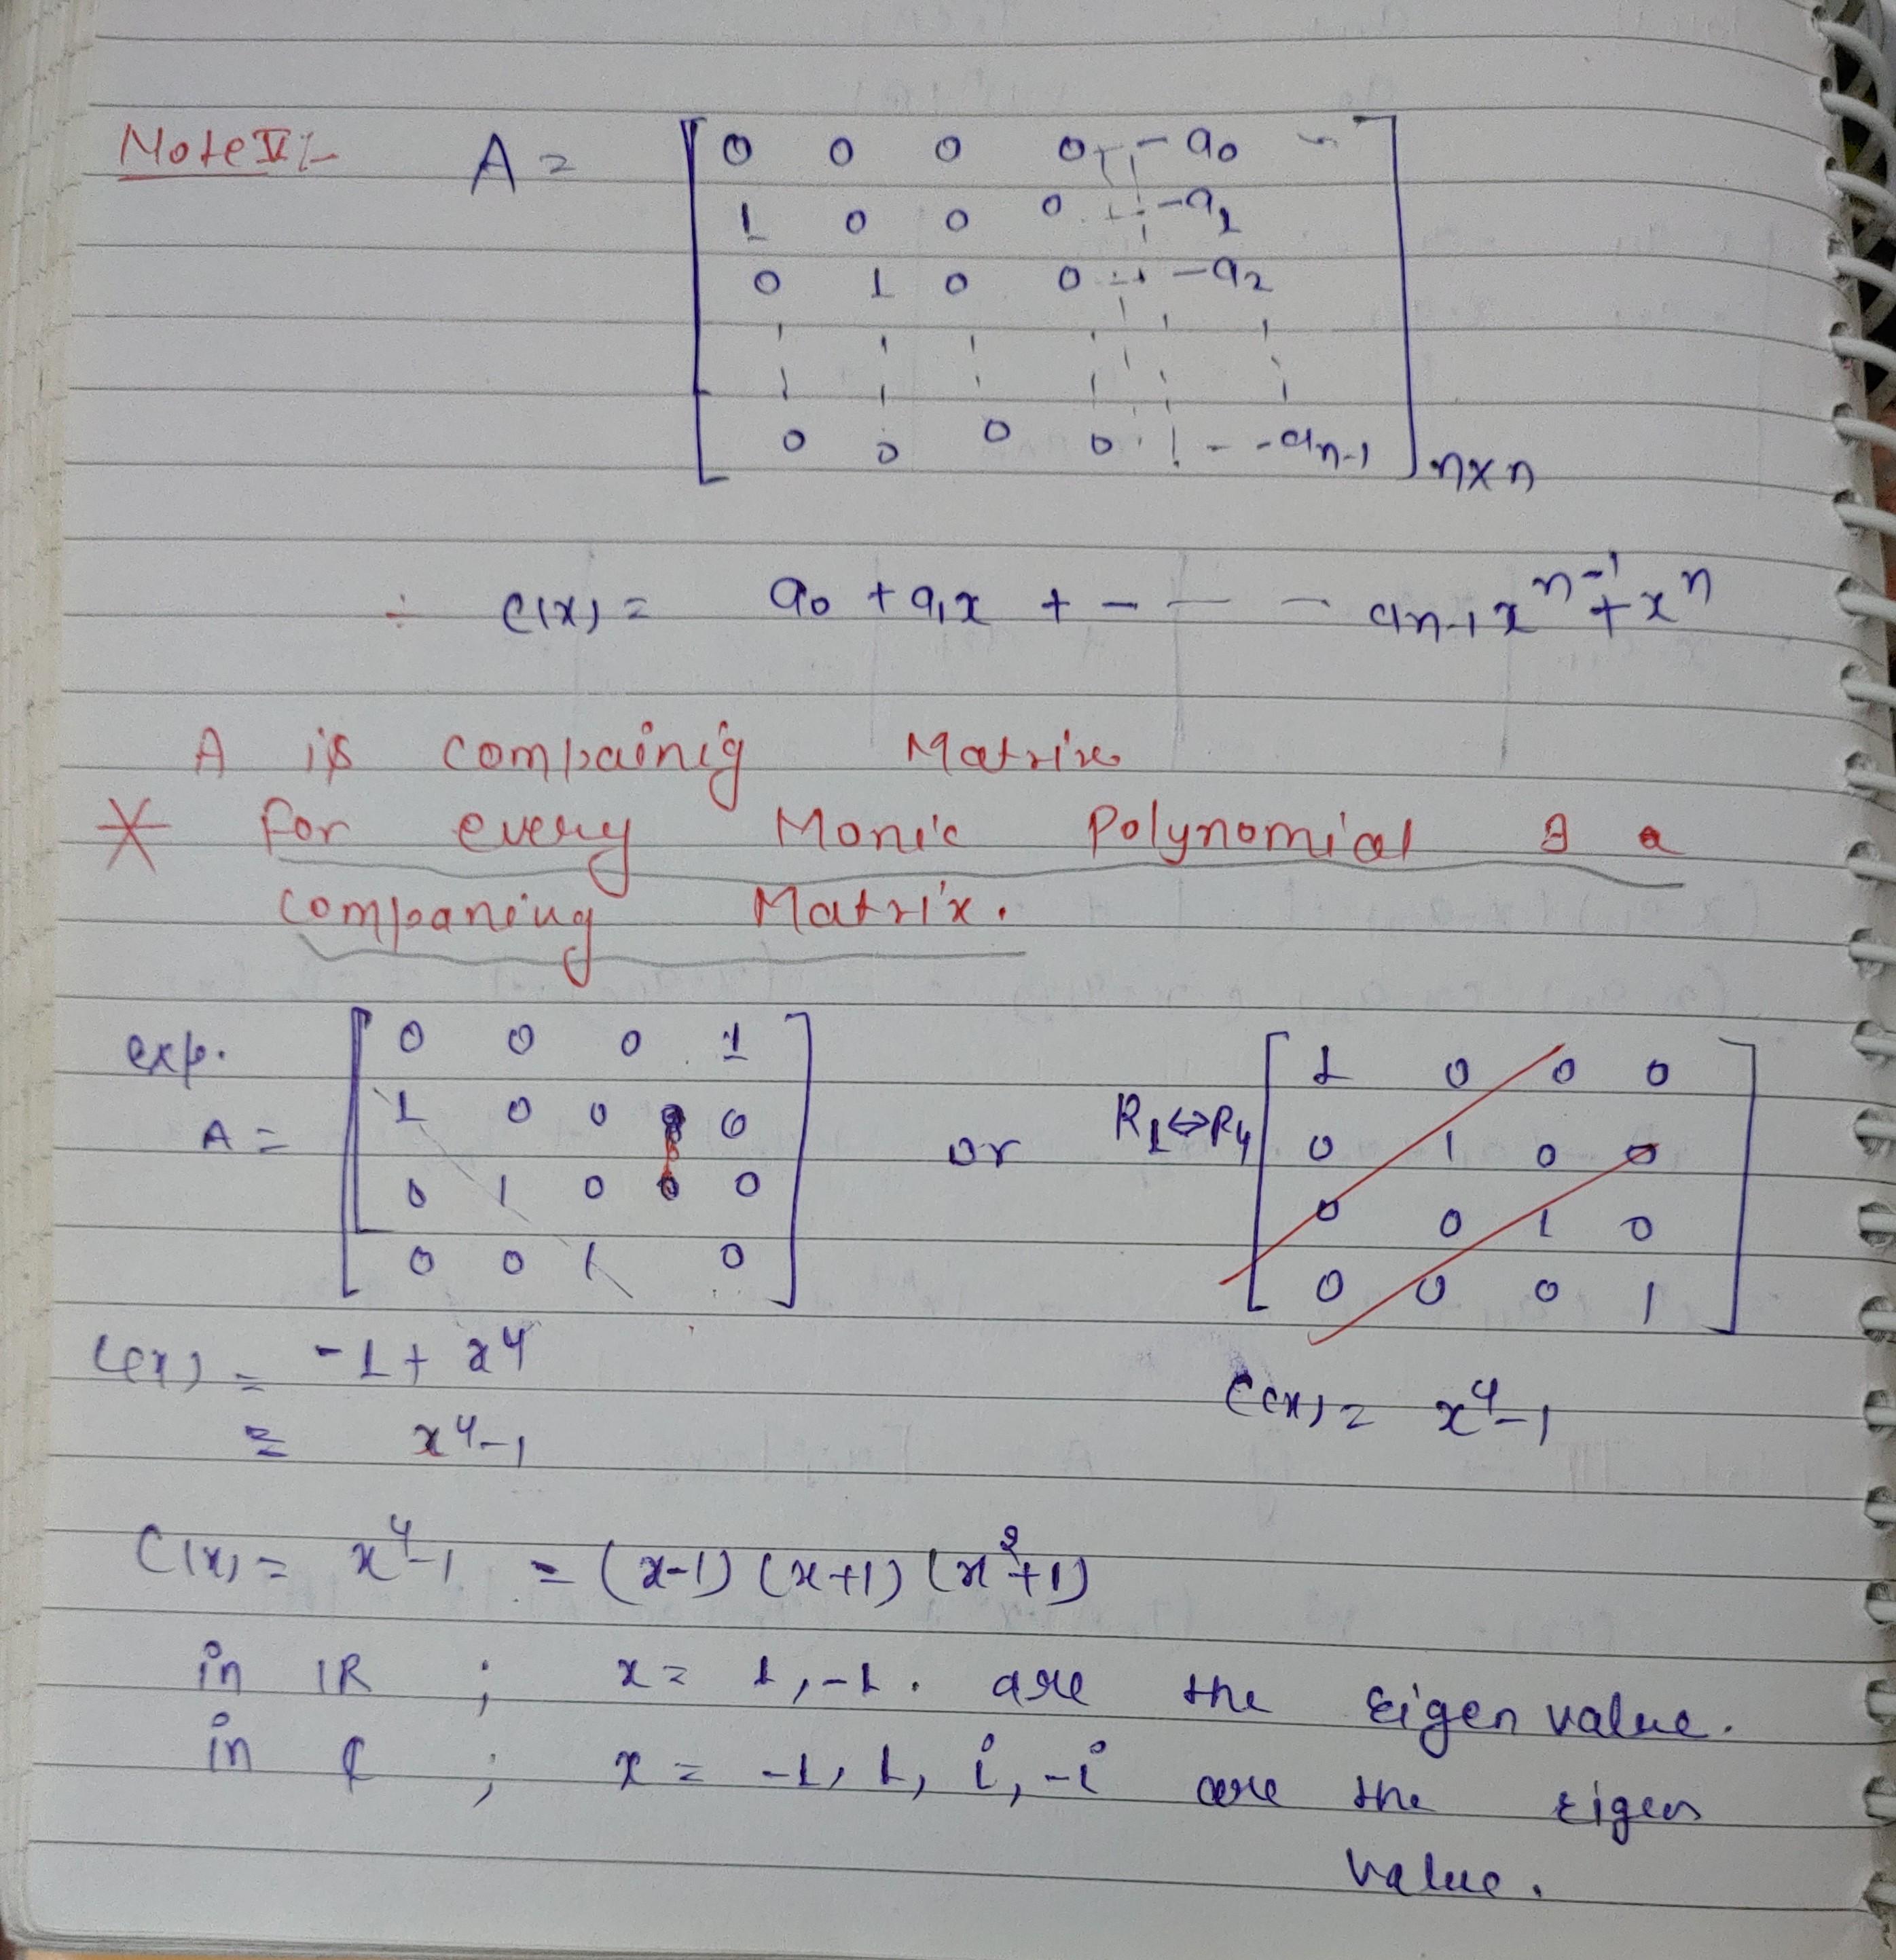 Note V:-
A = [ 0 0 0 0 - - -a0
1 0 0 0 - - -a1
0 1 0 0 - - -a2
0 0 0 0 1 - -an-1 ] n×n
÷ C(x) = a0 + a1x + - - - an-1 x^n-1 + x^n
A is compainig Matrix
* for every Monic Polynomial ∃ a
companeiug Matrix.
exp. A = [ 0 0 0 1
1 0 0 0
0 1 0 0
0 0 1 0 ]
or R1⇔R4 [ 1 0 0 0
0 1 0 0
0 0 1 0
0 0 0 1 ]
C(x) = -1 + x^4
= x^4-1
C(x) = x^4-1
C(x) = x^4-1 = (x-1) (x+1) (x^2+1)
in IR ; x = 1, -1. are the Eigen value.
in ₵ ; x = -1, 1, i, -i are the eigen
value.